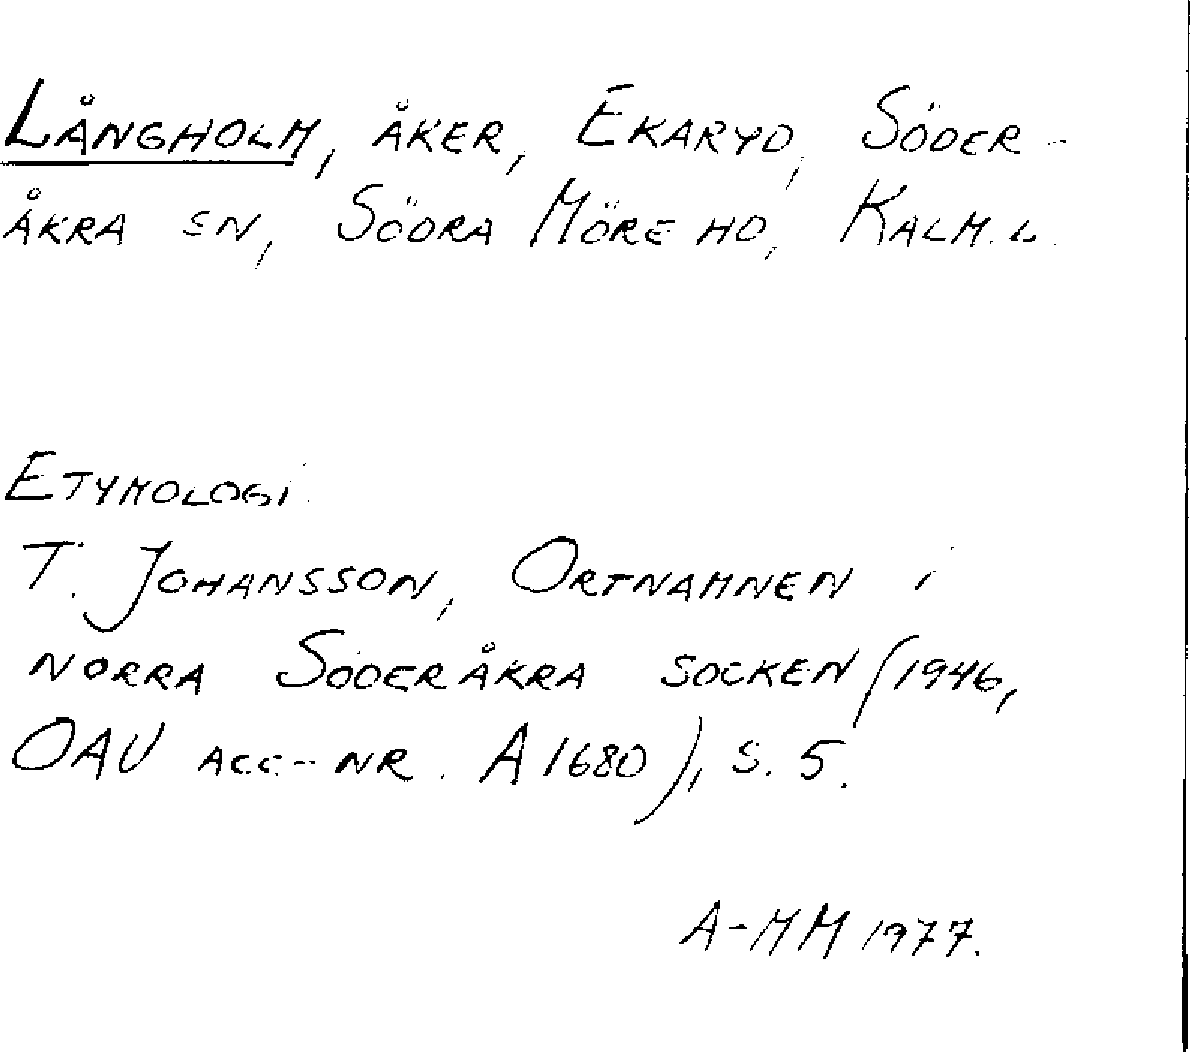 LÅNGHOLM, ÅKER, EKARYD, SÖDER-
ÅKRA SN, SÖDRA MÖRE HD, KALM. L.
ETYMOLOGI
T. JOHANSSON, ORTNAMNEN I
NORRA SÖDERÅKRA SOCKEN (1946,
OAU ACC-NR. A1680), S. 5.
A-MM 1977.